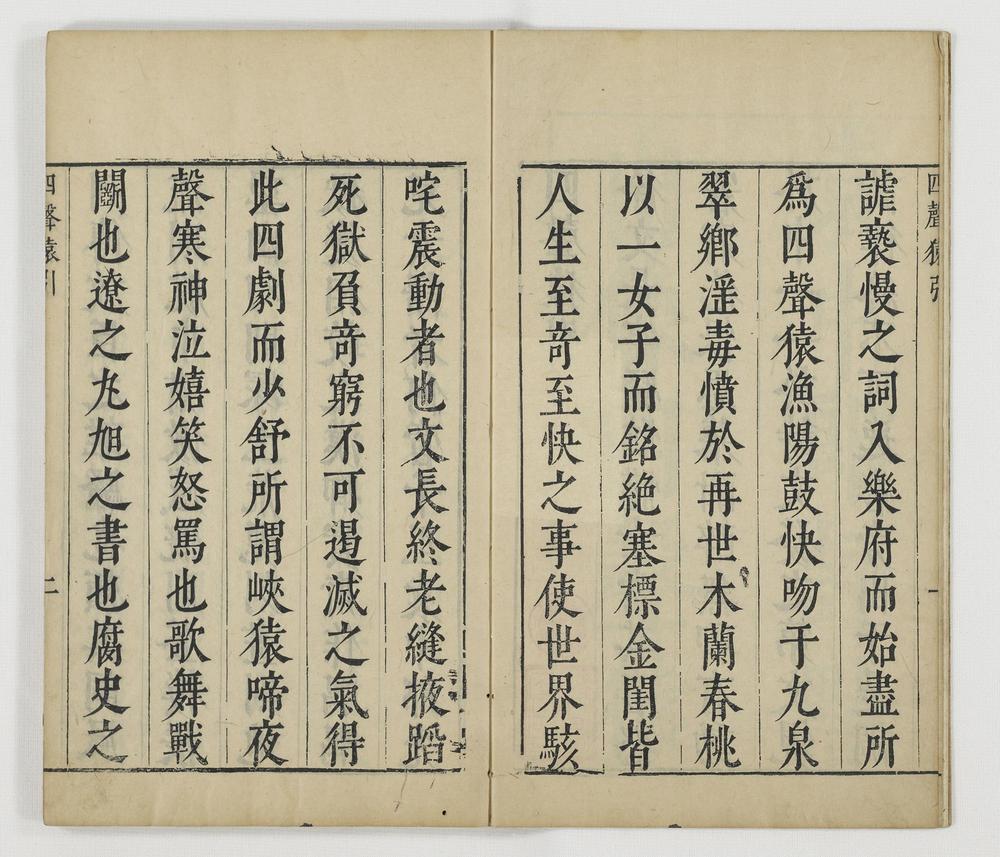 四聲猿引
一
謔褻慢之詞入樂府而始盡所
爲四聲猿漁陽鼓快吻于九泉
翠鄉淫毒憤於再世木蘭春桃
以一女子而銘絶塞標金閨皆
人生至奇至快之事使世界駭
咤震動者也文長終老縫掖蹈
死獄負奇窮不可遏滅之氣得
此四劇而少舒所謂峽猿啼夜
聲寒神泣嬉笑怒罵也歌舞戰
鬭也遼之丸旭之書也腐史之
四聲猿引
二